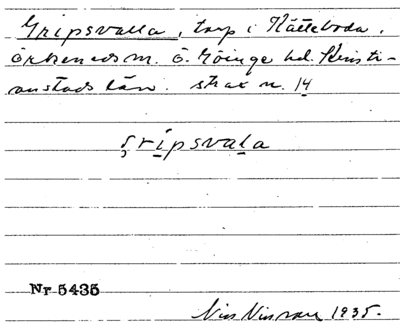 Gripsvalla, torp i Rätteboda,
Örkeneds m. Ö. Göinge hd. Kristi-
anstads län. strax n. 14
g̣rịpsvaḷa
Nr 5435
Nils Nilsson 1935.